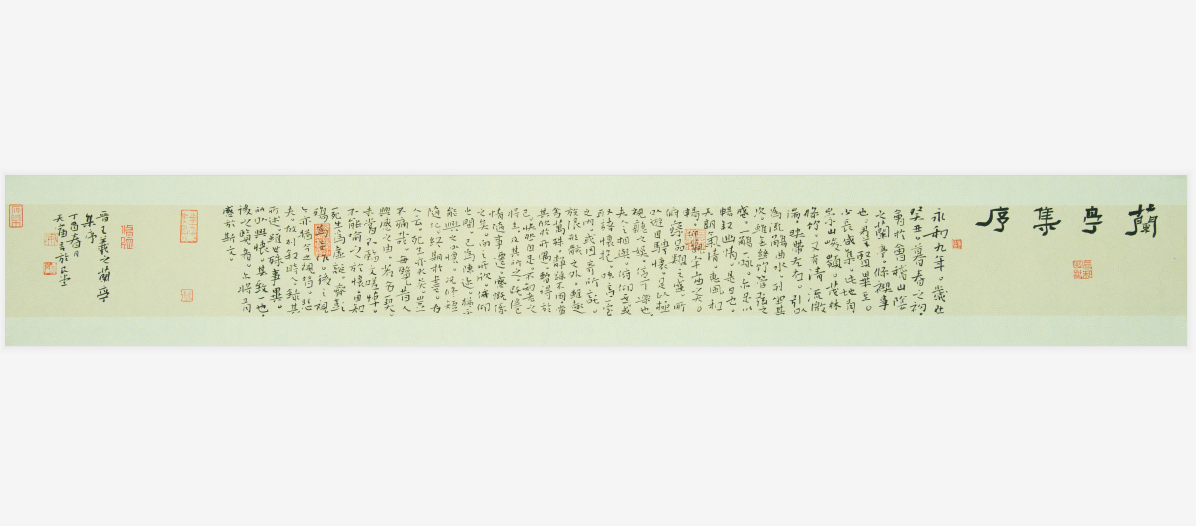 蘭亭集序
永和九年。歲在
癸丑。暮春之初。
會於會稽山陰
之蘭亭。脩禊事
也。羣賢畢至。
少長咸集。此地有
崇山峻領。茂林
脩竹。又有清流激
湍。映帶左右。引以
為流觴曲水。列坐其
次。雖無絲竹管弦之
盛。一觴一詠。亦足以
暢敘幽情。是日也。
天朗氣清。惠風和
暢。仰觀宇宙之大。
俯察品類之盛。所
以遊目騁懷。足以極
視聽之娛。信可樂也。
夫人之相與。俯仰一世。或
取諸懷抱。悟言一室
之內。或因寄所託。
放浪形骸之外。雖趣
舍萬殊。靜躁不同。當
其欣於所遇。暫得於
己。快然自足。不知老之
將至。及其所之既倦。
情隨事遷。感慨係
之矣。向之所欣。俛仰
之間。已為陳迹。猶不
能不以之興懷。況脩短
隨化。終期於盡。古
人云。死生亦大矣。豈
不痛哉。每覽昔人
興感之由。若合一契。
未嘗不臨文嗟悼。
不能喻之於懷。固知
一死生為虛誕。齊彭
殤為妄作。後之視
今。亦猶今之視昔。悲
夫。故列敘時人。錄其
所述。雖世殊事異。
所以興懷。其致一也。
後之覽者。亦將有
感於斯文。
晉王羲之蘭亭
集序
丁酉春月